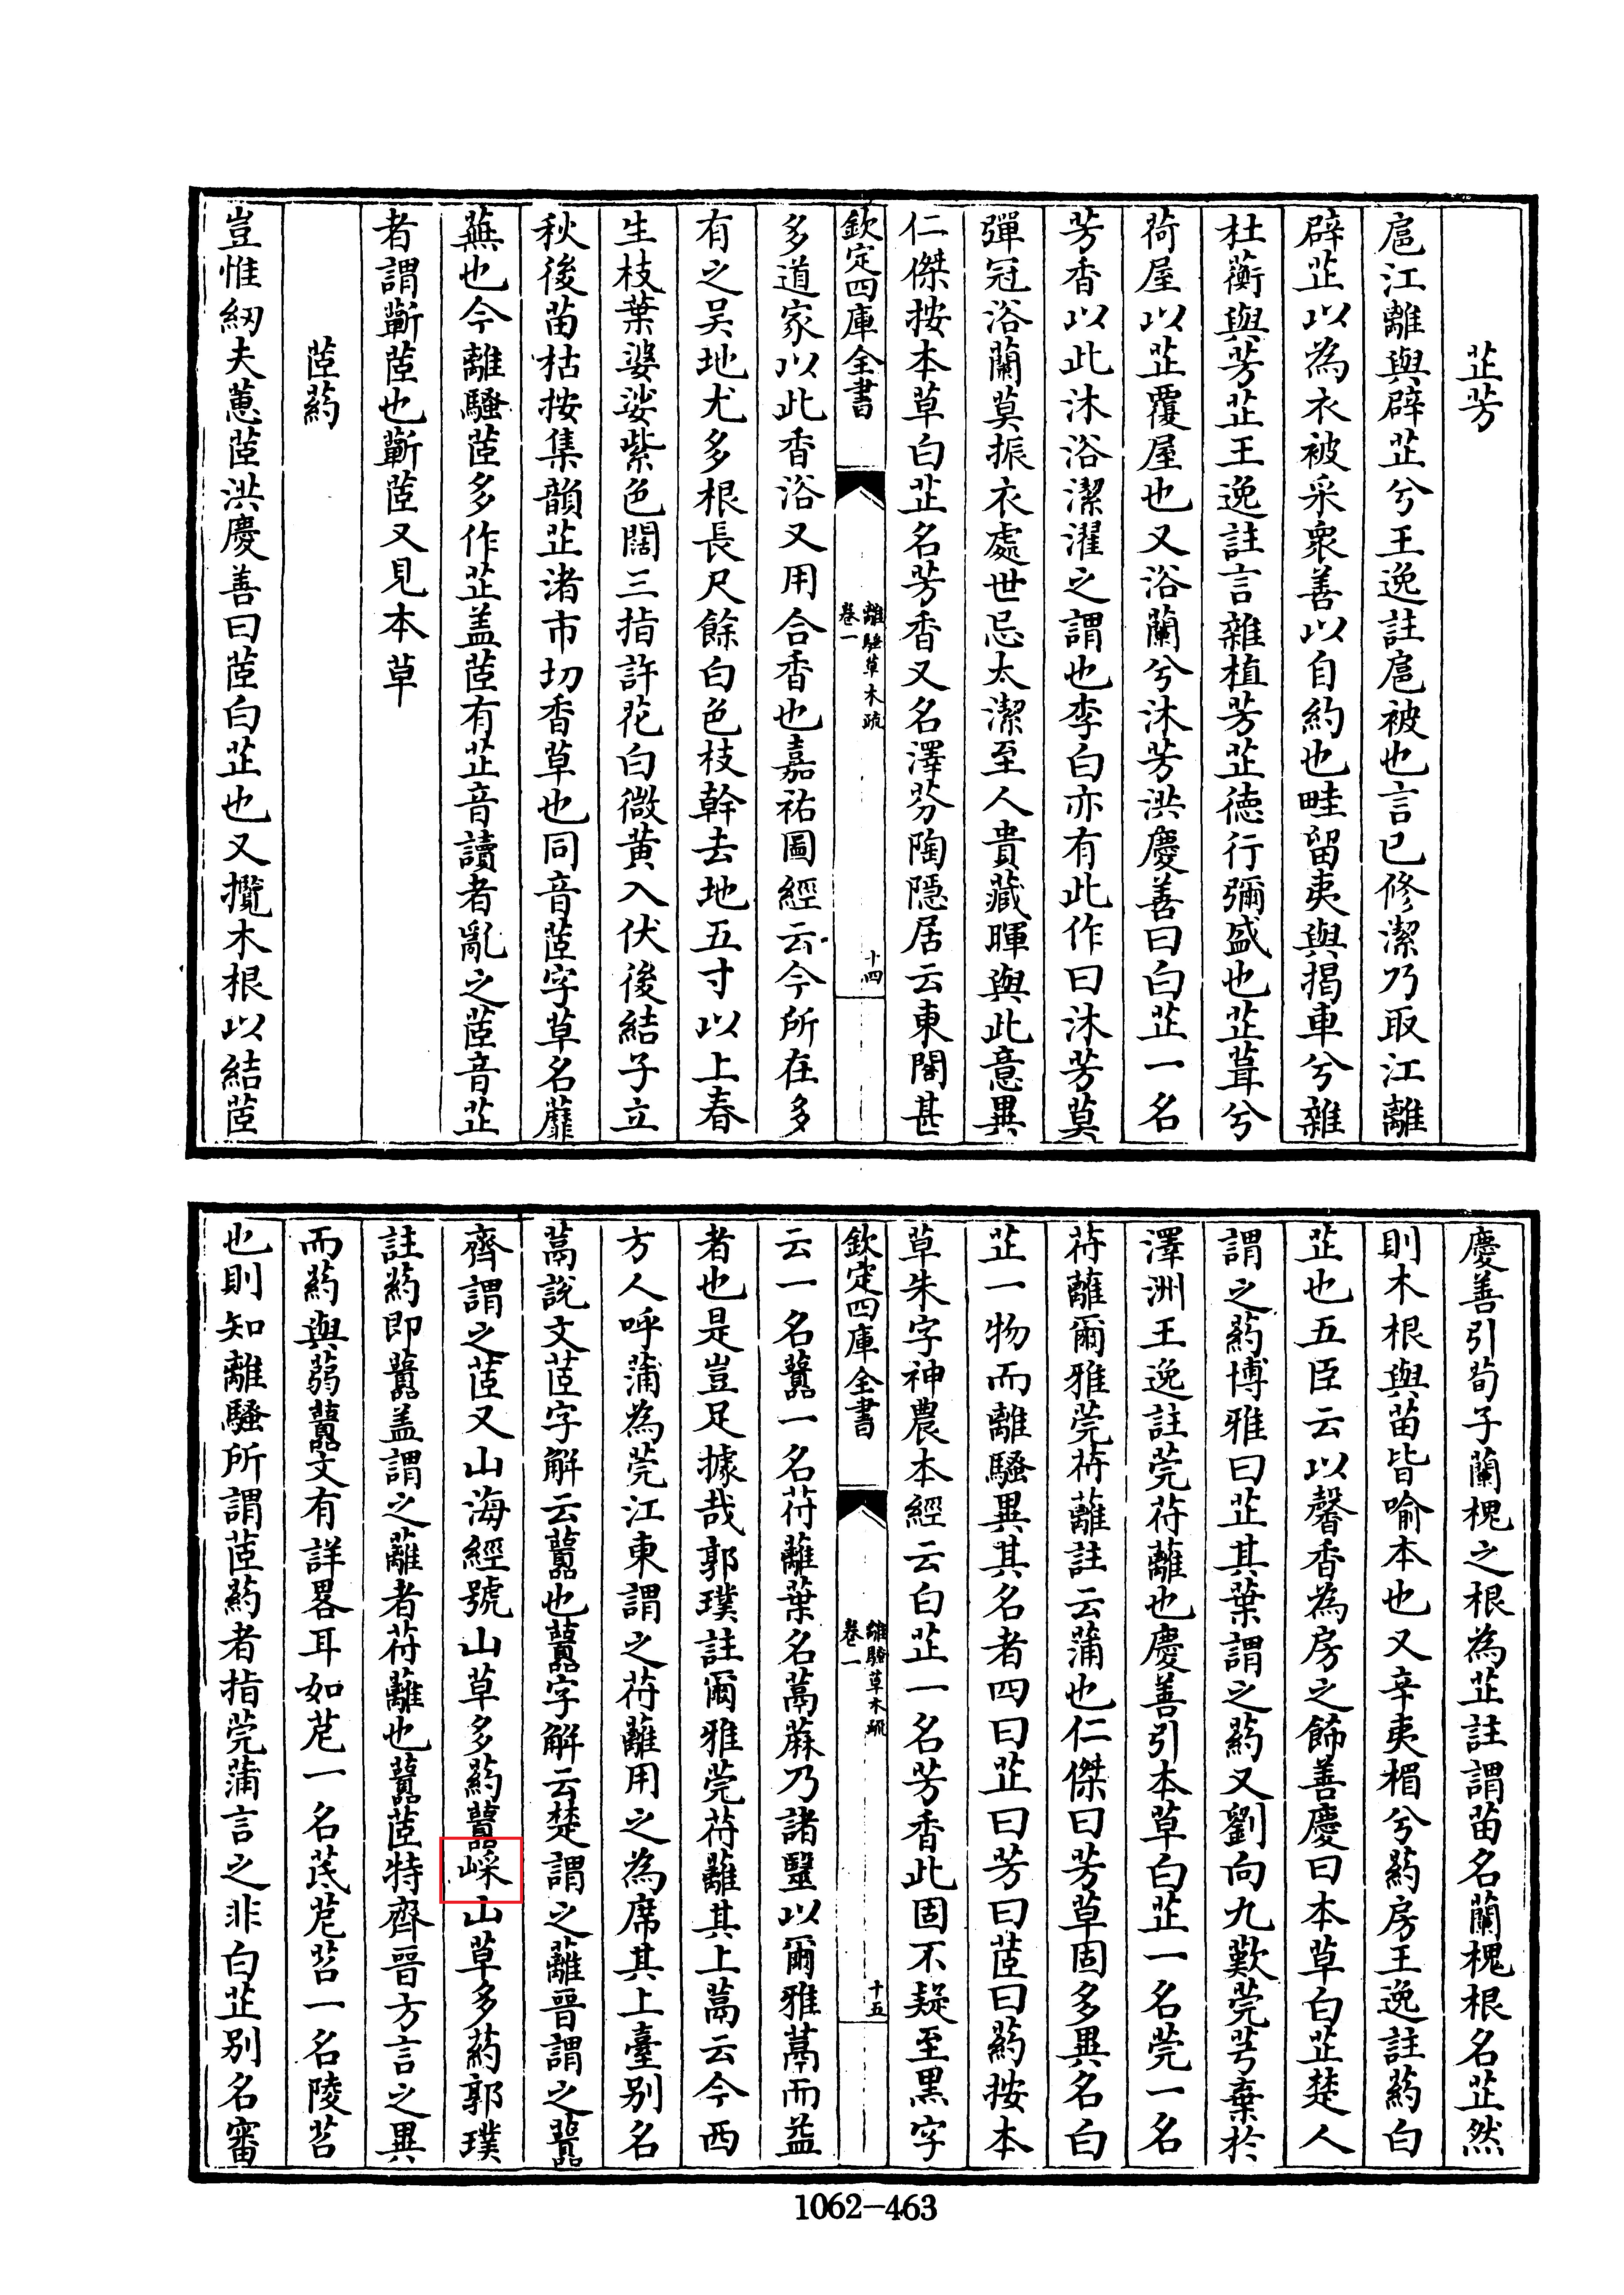 芷芳
扈江離與辟芷兮王逸註扈被也言已修潔乃取江離
辟芷以為衣被采衆善以自約也畦留夷與揭車兮雜
杜蘅與芳芷王逸註言雜植芳芷徳行彌盛也芷葺兮
荷屋以芷覆屋也又浴蘭兮沐芳洪慶善曰白芷一名
芳香以此沐浴潔濯之謂也李白亦有此作曰沐芳莫
彈冠浴蘭莫振衣處世忌太潔至人貴藏暉與此意異
仁傑按本草白芷名芳香又名澤芬陶隠居云東閣甚
欽定四庫全書
離騷草木疏
卷一
十四
多道家以此香浴又用合香也嘉祐圖經云今所在多
有之吴地尤多根長尺餘白色枝幹去地五寸以上春
生枝葉婆娑紫色闊三指許花白微黄入伏後結子立
秋後苗枯按集韻芷渚市切香草也同音茝字草名蘼
蕪也今離騷茝多作芷盖茝有芷音讀者亂之茝音芷
者謂蘄茝也蘄茝又見本草
茝葯
豈惟紉夫蕙茝洪慶善曰茝白芷也又擥木根以結茝
慶善引荀子蘭槐之根為芷註謂苗名蘭槐根名芷然
則木根與苗皆喻本也又辛夷楣兮葯房王逸註葯白
芷也五臣云以馨香為房之飾善慶曰本草白芷楚人
謂之葯博雅曰芷其葉謂之葯又劉向九歎莞芎棄於
澤洲王逸註莞苻蘺也慶善引本草白芷一名莞一名
苻蘺爾雅莞苻蘺註云蒲也仁傑曰芳草固多異名白
芷一物而離騷異其名者四曰芷曰芳曰茝曰葯按本
草朱字神農本經云白芷一名芳香此固不疑至黒字
欽定四庫全書
離騷草木疏
卷一
十五
云一名蘁一名苻蘺葉名蒚蔴乃諸毉以爾雅蒚而益
者也是豈足據哉郭璞註爾雅莞苻蘺其上蒚云今西
方人呼蒲為莞江東謂之苻蘺用之為席其上臺别名
蒚說文茝字解云蘁也蘁字解云楚謂之蘺晉謂之蘁
齊謂之茝又山海經號山草多葯蘁㟲山草多葯郭璞
註葯即蘁盖謂之蘺者苻蘺也蘁茝特齊晉方言之異
而葯與蒻蘁文有詳畧耳如芑一名茋芑苕一名陵苕
也則知離騷所謂茝葯者指莞蒲言之非白芷别名審
1062-463